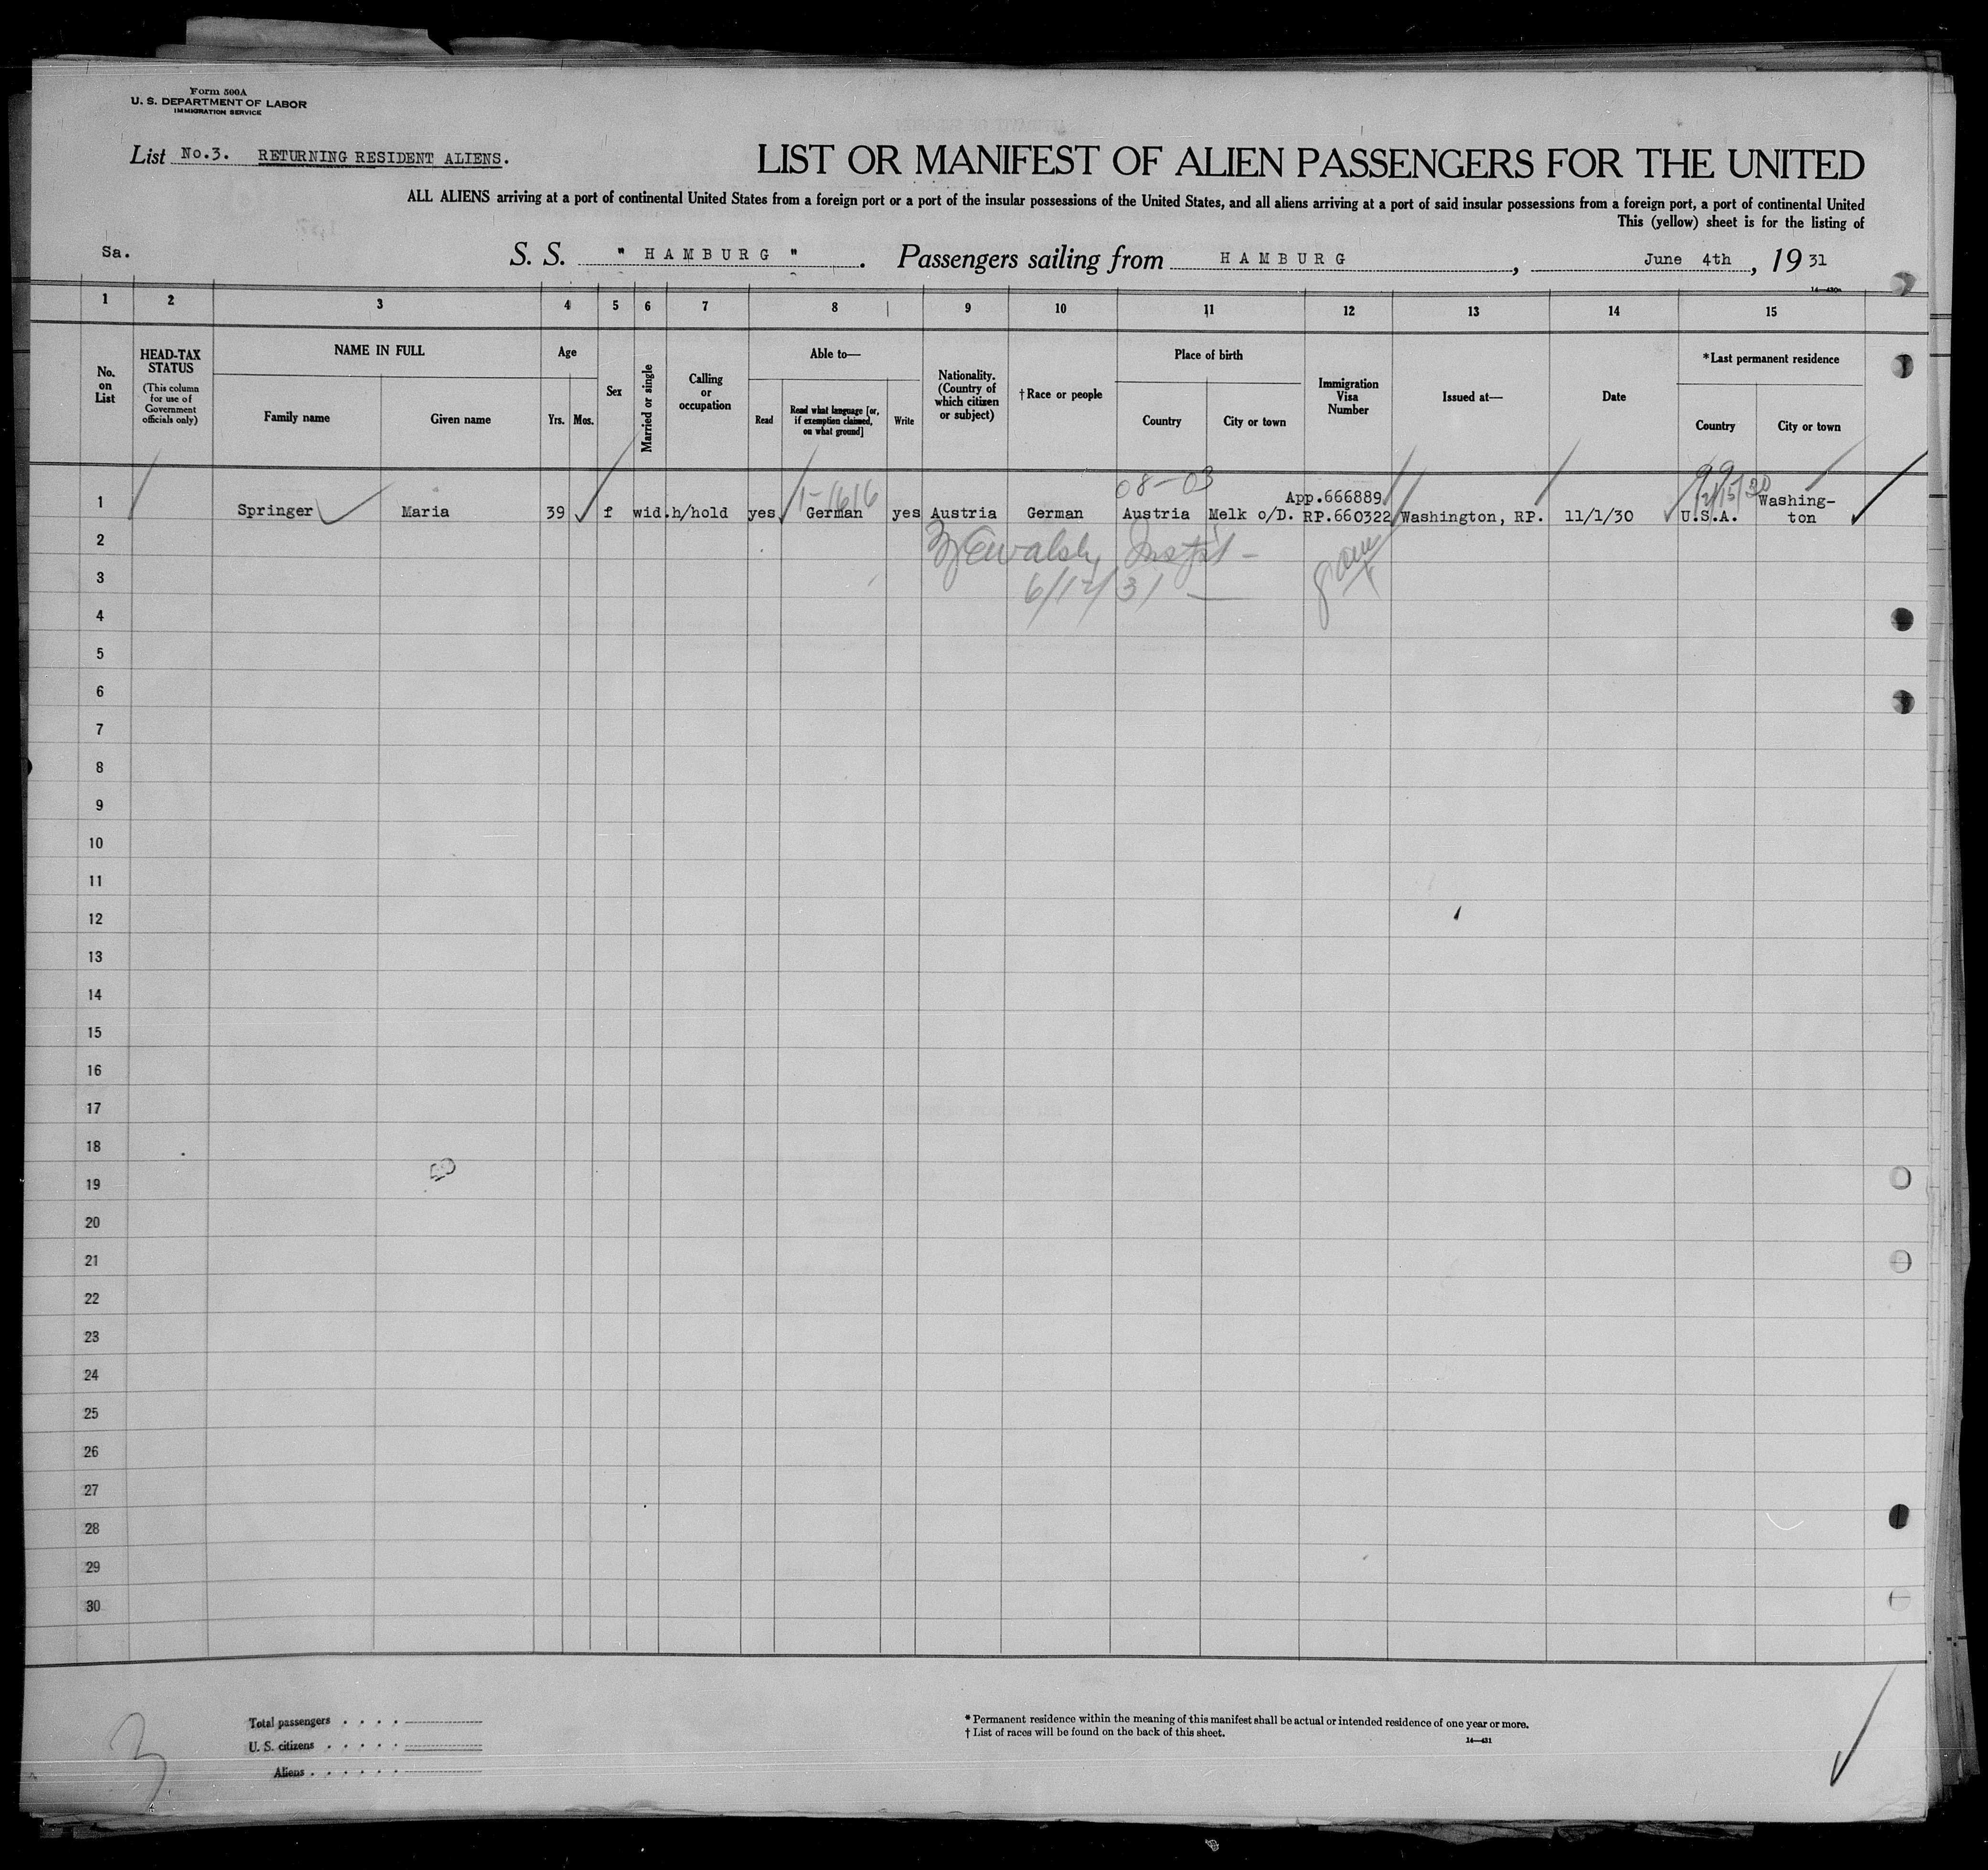 Form 500A
U. S. DEPARTMENT OF LABOR
IMMIGRATION SERVICE
List No.3. RETURNING RESIDENT ALIENS.
LIST OR MANIFEST OF ALIEN PASSENGERS FOR THE UNITED
ALL ALIENS arriving at a port of continental United States from a foreign port or a port of the insular possessions of the United States, and all aliens arriving at a port of said insular possessions from a foreign port, a port of continental United
This (yellow) sheet is for the listing of
Sa. S. S. " HAMBURG ". Passengers sailing from HAMBURG, June 4th, 19 31
14—430a
1 2 3 4 5 6 7 8 9 10 11 12 13 14 15
No. on List
HEAD-TAX STATUS
(This column for use of Government officials only)
NAME IN FULL
Family name
Given name
Age
Yrs. Mos.
Sex
Married or single
Calling or occupation
Able to—
Read
Read what language [or, if exemption claimed, on what ground]
Write
Nationality. (Country of which citizen or subject)
† Race or people
Place of birth
Country
City or town
Immigration Visa Number
Issued at—
Date
*Last permanent residence
Country
City or town
08-03
99
App.666889
Washing-
1 Springer Maria 39 f wid. h/hold yes German yes Austria German Austria Melk o/D. RP.660322 Washington, RP. 11/1/30 U.S.A. ton
2
3
6/12/31
4
5
6
7
8
9
10
11
12
13
14
15
16
17
18
19
20
21
22
23
24
25
26
27
28
29
30
Total passengers . . . .
U. S. citizens . . . . .
Aliens . . . . . .
3
* Permanent residence within the meaning of this manifest shall be actual or intended residence of one year or more.
† List of races will be found on the back of this sheet.
14—431